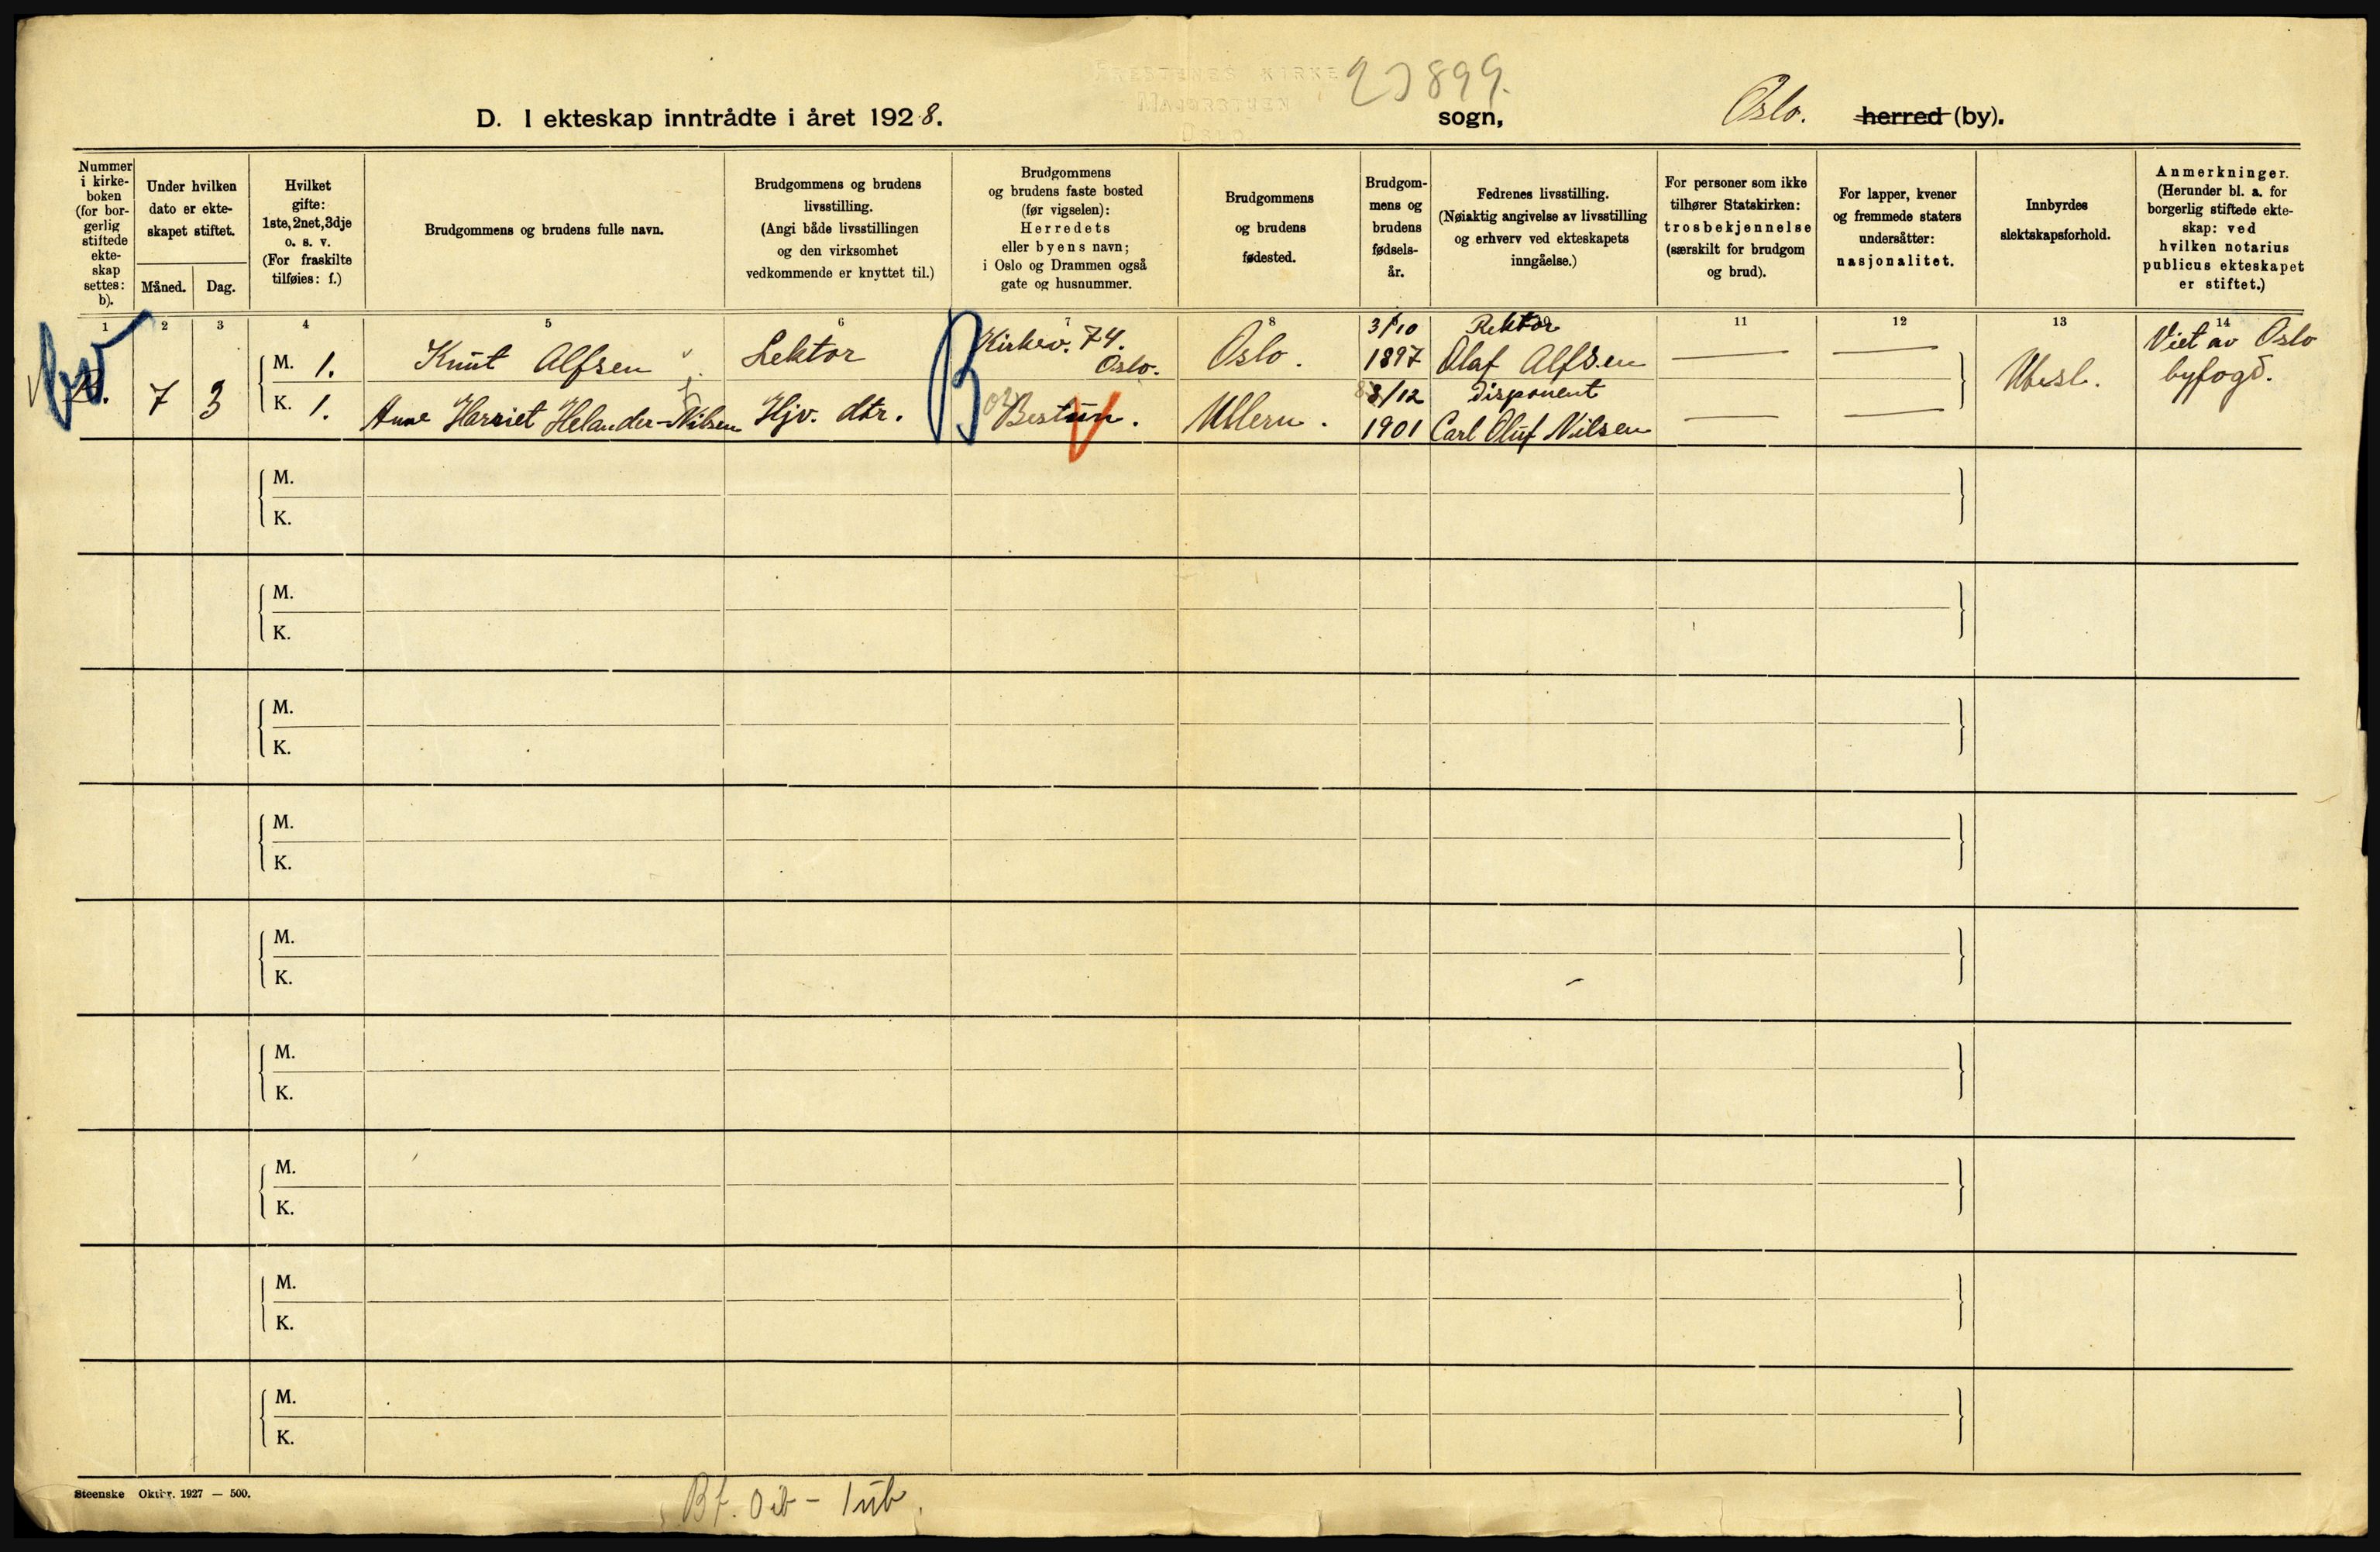 FRESTENES KIRKE
MAJORSTUEN
OSLO
23899.
D. I ekteskap inntrådte i året 1928.
sogn,
Oslo. herred (by).
Nummer i kirke-boken (for bor-gerlig stiftede ekte-skap settes: b).
Under hvilken dato er ekte-skapet stiftet.
Måned. Dag.
Hvilket gifte: 1ste, 2net, 3dje o. s. v. (For fraskilte tilføies: f.)
Brudgommens og brudens fulle navn.
Brudgommens og brudens livsstilling. (Angi både livsstillingen og den virksomhet vedkommende er knyttet til.)
Brudgommens og brudens faste bosted (før vigselen): Herredets eller byens navn; i Oslo og Drammen også gate og husnummer.
Brudgommens og brudens fødested.
Brudgom-mens og brudens fødsels-år.
Fedrenes livsstilling. (Nøiaktig angivelse av livsstilling og erhverv ved ekteskapets inngåelse.)
For personer som ikke tilhører Statskirken: trosbekjennelse (særskilt for brudgom og brud).
For lapper, kvener og fremmede staters undersåtter: nasjonalitet.
Innbyrdes slektskapsforhold.
Anmerkninger. (Herunder bl. a. for borgerlig stiftede ekte-skap: ved hvilken notarius publicus ekteskapet er stiftet.)
1 2 3 4 5 6 7 8 9 11 12 13 14
7 3
M. 1. Knut Alfsen Lektor Kirkev. 74. Oslo. Oslo. 3/10 1897 Rektor Olaf Alfsen — —
K. 1. Anne Harriet Helander-Nilsen Hjv. dtr. B Bestun. Ullern. 8/12 1901 Disponent Carl Oluf Nilsen — —
Ubesl.
Viet av Oslo byfogd.
M.
K.
M.
K.
M.
K.
M.
K.
M.
K.
M.
K.
M.
K.
M.
K.
M.
K.
Steenske Oktbr. 1927 — 500.
Bf. 0 ib - 1 ub.